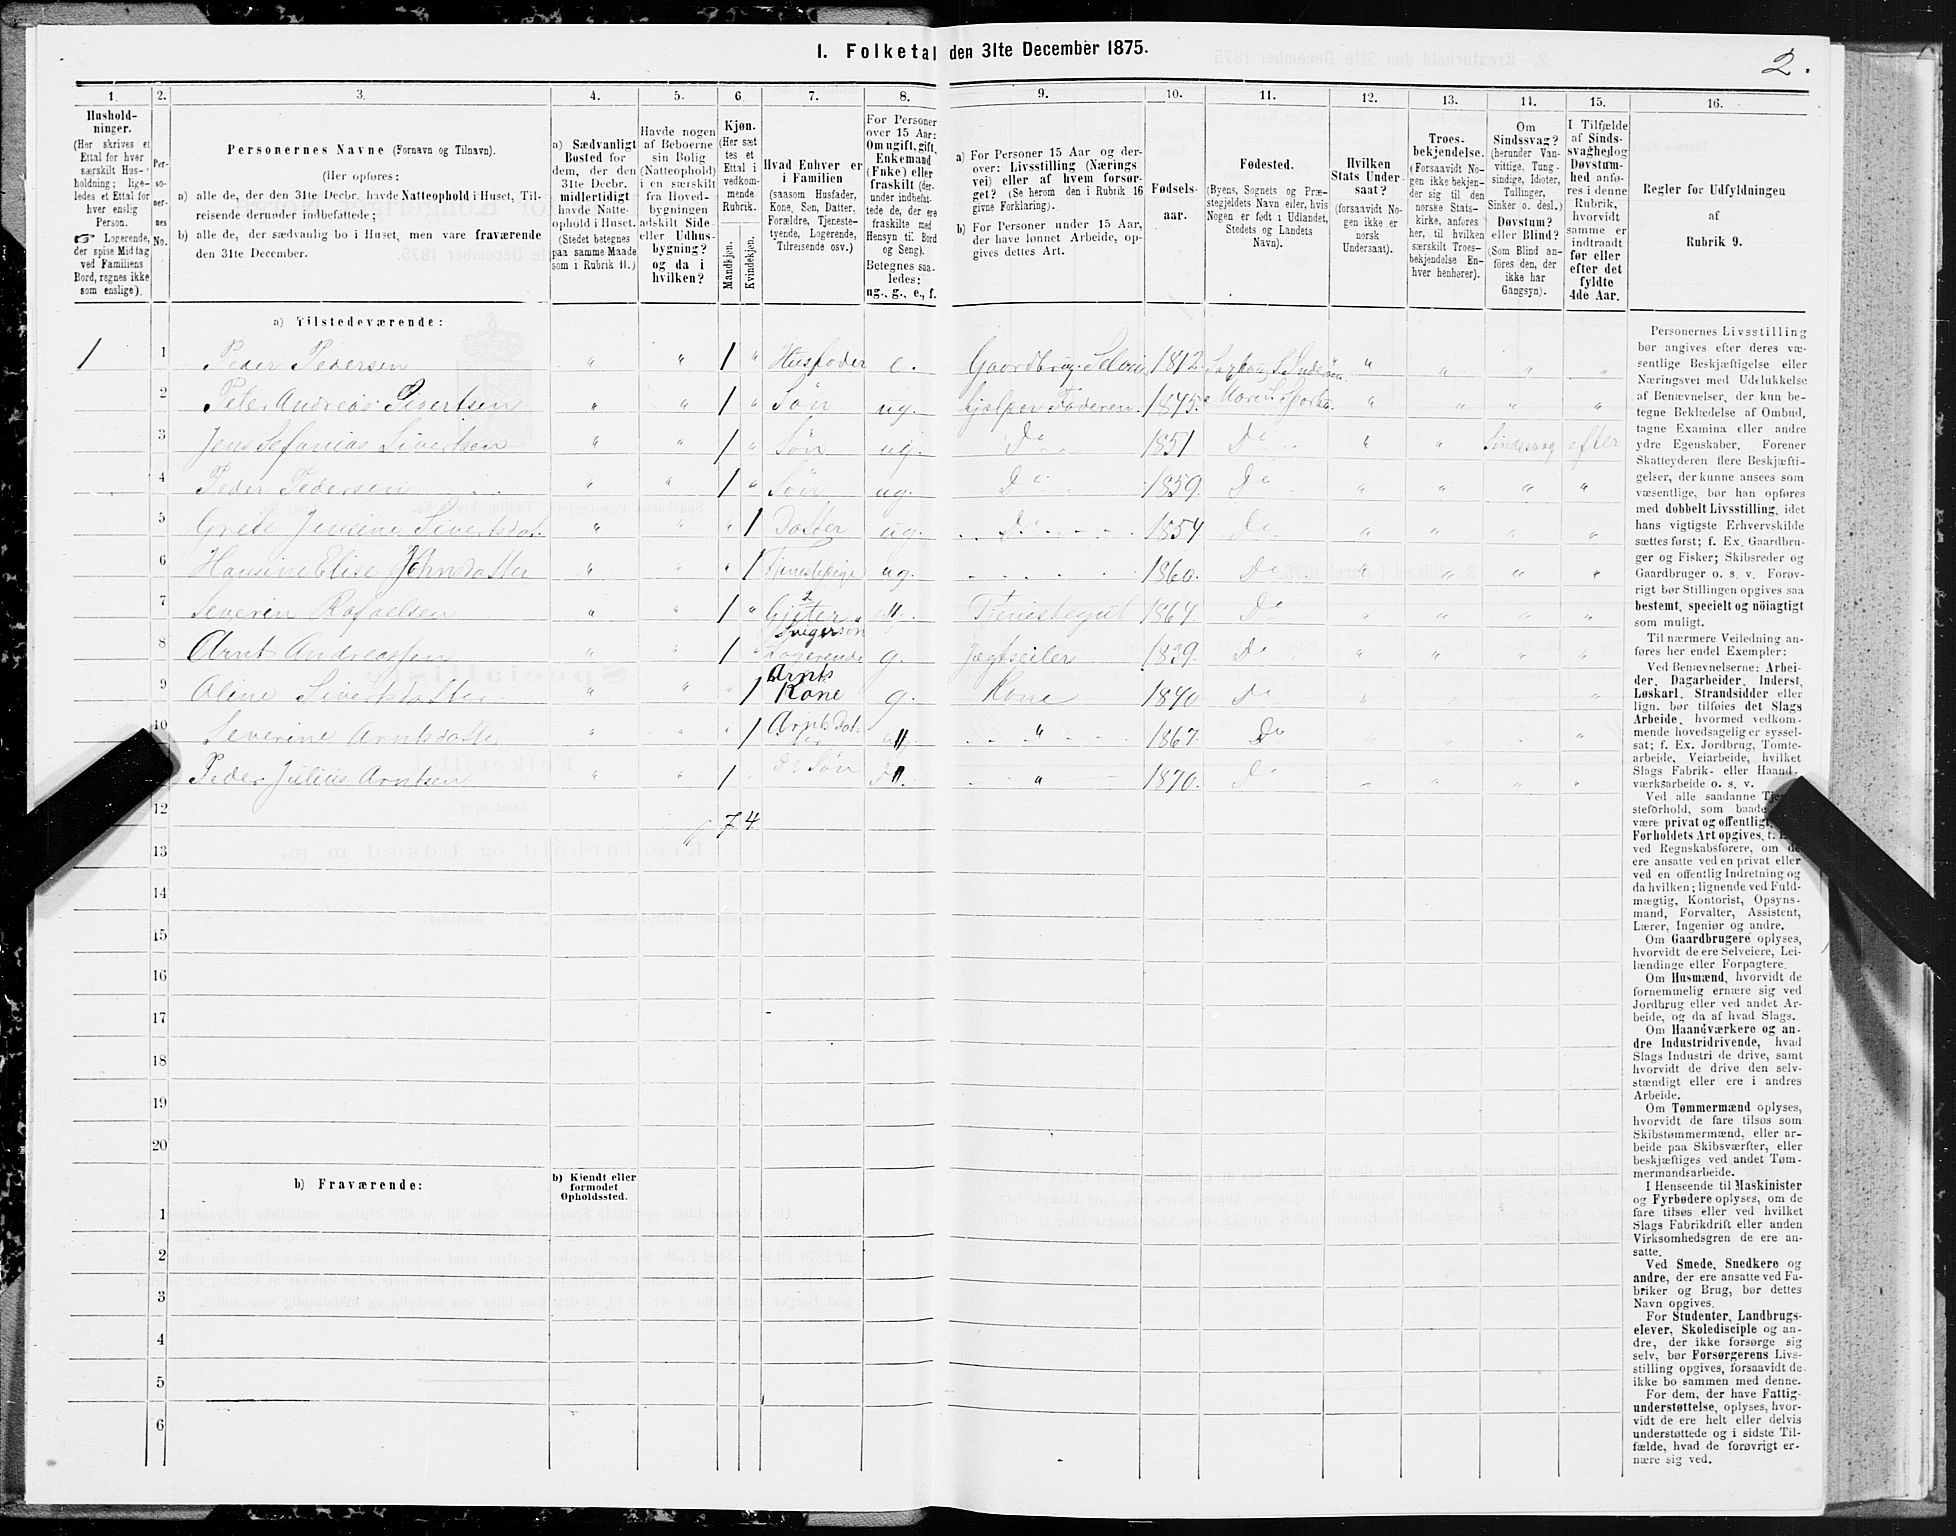 I. Folketal den 31te December 1875.
2.
1. 2. 3. 4. 5. 6. 7. 8. 9. 10. 11. 12. 13. 14. 15. 16.
Hushold-
ninger.
(Her skrives et
Ettal for hver
særskilt Hus-
holdning; lige-
ledes et Ettal for
hver enslig
Person.
☞ Logerende,
der spise Middag
ved Familiens
Bord, regnes ikke
som enslige).
Per-
so-
ner-
nes
No.
Personernes Navne (Fornavn og Tilnavn).
(Her opføres:
a) alle de, der den 31te Decbr. havde Natteophold i Huset, Til-
reisende derunder indbefattede;
b) alle de, der sædvanlig bo i Huset, men vare fraværende
den 31te December.
a) Sædvanligt
Bosted for
dem, der den
31te Decbr.
midlertidigt
havde Natte-
ophold i Huset.
(Stedet betegnes
paa samme Maade
som i Rubrik 11.)
Havde nogen
af Beboerne
sin Bolig
(Natteophold)
i en særskilt
fra Hoved-
bygningen
adskilt Side-
eller Udhus-
bygning?
og da i
hvilken?
Kjøn.
(Her sæt
tes et
Ettal i
vedkom-
mende
Rubrik.
Mandkjøn.
Kvindekjøn.
Hvad Enhver er
i Familien
(saasom Husfader,
Kone, Søn, Datter,
Forældre, Tjeneste-
tyende, Logerende,
Tilreisende osv.)
For Personer
over 15 Aar:
Om ugift, gift,
Enkemand
(Enke) eller
fraskilt (der-
under indbefat-
tede de, der ere
fraskilte med
Hensyn til Bord
og Seng).
Betegnes saa-
ledes:
ug., g., e., f.
a) For Personer 15 Aar og der-
over: Livsstilling (Nærings
vei) eller af hvem forsør-
get? (Se herom den i Rubrik 16
givne Forklaring).
b) For Personer under 15 Aar,
der have lønnet Arbeide, op-
gives dettes Art.
Fødsels-
aar.
Fødested.
(Byens, Sognets og Præ-
stegjeldets Navn eller, hvis
Nogen er født i Udlandet,
Stedets og Landets
Navn).
Hvilken
Stats Under-
saat?
(forsaavidt No-
gen ikke er
norsk
Undersaat).
Troes-
bekjendelse.
(Forsaavidt No-
gen ikke bekjen-
der sig til den
norske Stats-
kirke, anføres
her, til hvilken
særskilt Troes-
bekjendelse En-
hver henhører).
Om
Sindssvag?
(herunder Van-
vittige, Tung-
sindige, Idioter,
Tullinger,
Sinker o. desl.)
Døvstum?
eller Blind?
(Som Blind an-
føres den, der
ikke har
Gangsyn).
I Tilfælde
af Sinds-
svaghed og
Døvstum-
hed anfø-
res i denne
Rubrik,
hvorvidt
samme er
indtraadt
før eller
efter det
fyldte
4de Aar.
Regler for Udfyldningen
af
Rubrik 9.
a) Tilstedeværende:
1 1 Peder Pedersen " " 1 " Husfader e. Gaardbrug. Selveier 1812. " " " "
2 Peter Andreas Sivertsen " " 1 " Søn ug. hjælper Faderen. 1845. " " " "
3 Jens Stefanias Sivertsen " " 1 " Søn ug. Do 1851 Do " " Sindssvag efter
4 Peder Pedersen " " 1 " Søn ug. Do 1859. Do " " " "
5 Grete Jensine Sivertsdat. " " " 1 Datter ug. Do 1854 Do " " " "
6 Hansine Elise Johnsdatter " " " 1 Tjenestepige ug. 1860. Do " " " "
7 Severin Rafaelsen " " 1 " Gjeter " Tjenestegut 1864. Do " " " "
Svigersøn
8 Arnt Andreassen " " 1 " Logerende g. Jægtseiler 1839. Do " " " "
Arnts
9 Oline Sivertsdatter " " " 1 Kone g. Kone 1840 Do " " " "
10 Severine Arntsdatter " " " 1 Arnts Dat- " " 1867. Do " " " "
ter
11 Peder Julius Arntsen " " 1 " Do Søn " " 1870. Do " " " "
12 7 4
13
14
15
16
17
18
19
20
b) Fraværende:
b) Kjendt eller
formodet
Opholdssted.
1
2
3
4
5
6
Personernes Livsstilling
bør angives efter deres væ-
sentlige Beskjæftigelse eller
Næringsvei med Udelukkelse
af Benævnelser, der kun be-
tegne Beklædelse af Ombud,
tagne Examina eller andre
ydre Egenskaber. Forener
Skatteyderen flere Beskjæfti-
gelser, der kunne ansees som
væsentlige, bør han opføres
med dobbelt Livsstilling, idet
hans vigtigste Erhvervskilde
sættes først; f. Ex. Gaardbru-
ger og Fisker; Skibsreder og
Gaardbruger o. s. v. Forøv-
rigt bør Stillingen opgives saa
bestemt, specielt og nöiagtigt
som muligt.
Til nærmere Veiledning an-
føres her endel Exempler:
Ved Benævnelserne: Arbei-
der, Dagarbeider, Inderst,
Løskarl, Strandsidder eller
lign. bør tilføies det Slags
Arbeide, hvormed vedkom-
mende hovedsagelig er syssel-
sat; f. Ex. Jordbrug, Tomte-
arbeide, Veiarbeide, hvilket
Slags Fabrik- eller Haand-
værksarbeide o. s. v.
Ved alle saadanne Tjene-
steforhold, som baade
være privat og offentligt,
Forholdets Art opgives, f. Ex.
ved Regnskabsførere, om de
ere ansatte ved en privat eller
ved en offentlig Indretning og
da hvilken; lignende ved Fuld-
mægtig, Kontorist, Opsyns-
mand, Forvalter, Assistent,
Lærer, Ingeniør og andre.
Om Gaardbrugere oplyses,
hvorvidt de ere Selveiere, Lei-
lændinge eller Forpagtere.
Om Husmænd, hvorvidt de
fornemmelig ernære sig ved
Jordbrug eller ved andet Ar-
beide, og da af hvad Slags.
Om Haandværkere og an-
dre Industridrivende, hvad
Slags Industri de drive, samt
hvorvidt de drive den selv-
stændigt eller ere i andres
Arbeide.
Om Tømmermænd oplyses,
hvorvidt de fare tilsøs som
Skibstømmermænd, eller ar-
beide paa Skibsværfter, eller
beskjæftiges ved andet Tøm-
mermandsarbeide.
I Henseende til Maskinister
og Fyrbødere oplyses, om de
fare tilsøs eller ved hvilket
Slags Fabrikdrift eller anden
Virksomhedsgren de ere an-
satte.
Ved Smede, Snedkere og
andre, der ere ansatte ved Fa-
briker og Brug, bør dettes
Navn opgives.
For Studenter, Landbrugs-
elever, Skoledisciple og an-
dre, der ikke forsørge sig
selv, bør Forsørgerens Livs-
stilling opgives, forsaavidt de
ikke bo sammen med denne.
For dem, der have Fattig-
understøttelse, oplyses, hvor-
vidt de ere helt eller delvis
understøttede og i sidste Til-
fælde, hvad de forøvrigt er-
nære sig ved.